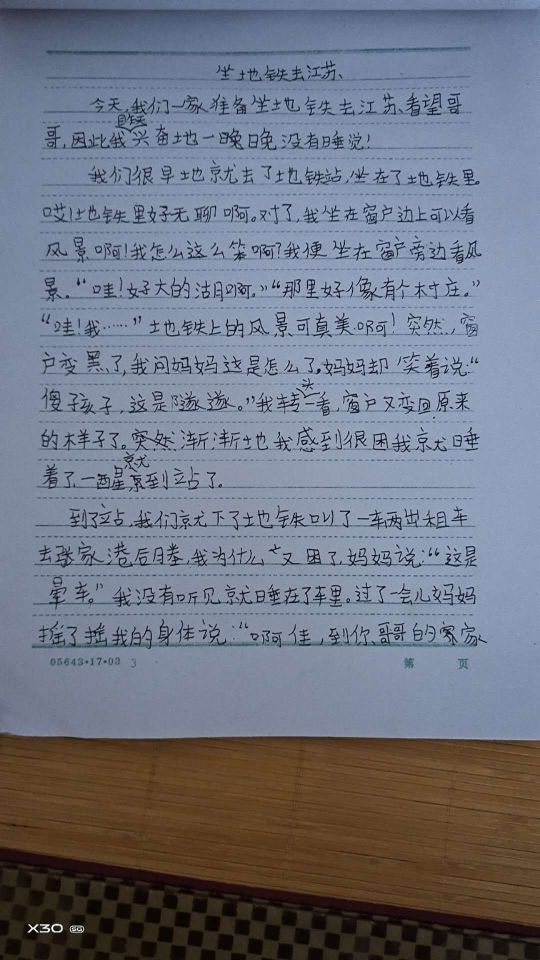 坐地铁去江苏
今天，我们一家准备坐地铁去江苏看望哥
哥，因此我兴奋地一晚晚没有睡觉！
我们很早地就去了地铁站，坐在了地铁里。
哎！地铁里好无聊啊。对了，我坐在窗户边上可以看
风景啊！我怎么这么笨啊？我便坐在窗户旁边看风
景。“哇！好大的湖啊。”“那里好像有个村庄。”
“哇！我……”地铁上的风景可真美啊！突然，窗
户变黑了，我问妈妈这是怎么了。妈妈却笑着说：“
傻子孩子，这是隧遂。”我转头一看，窗户又变回原来
的样子了。突然渐渐地我感到很困我就睡
着了一醒就到站了。
到了站，我们就下了地铁叫了一车两出租车
去张家港后塍，我为什么又困了，妈妈说：“这是
晕车。”我没有听见就睡在了车里。过了一会儿妈妈
摇了摇我的身体说：“啊佳，到你哥哥的家家
05643·17·03 3
第 页
X30 5G